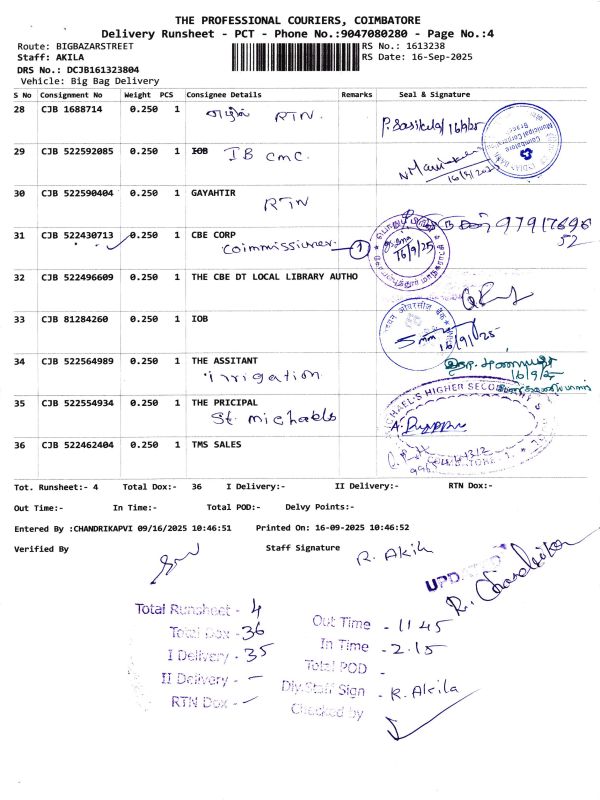 THE PROFESSIONAL COURIERS, COIMBATORE
Delivery Runsheet - PCT - Phone No.:9047080280 - Page No.:4
Route: BIGBAZARSTREET RS No.: 1613238
Staff: AKILA RS Date: 16-Sep-2025
DRS No.: DCJB161323804
Vehicle: Big Bag Delivery
S No Consignment No Weight PCS Consignee Details Remarks Seal & Signature
28 CJB 1688714 0.250 1 எழில் RTN. P. Sasikala/16/9/25
29 CJB 522592085 0.250 1 IOB IB CMC.
30 CJB 522590404 0.250 1 GAYAHTIR
RTN
97917696
52
31 CJB 522430713 0.250 1 CBE CORP
Coimmissiuner 1 16/9/25
32 CJB 522496609 0.250 1 THE CBE DT LOCAL LIBRARY AUTHO
33 CJB 81284260 0.250 1 IOB
16/9/25
34 CJB 522564989 0.250 1 THE ASSITANT
irrigation 16/9/25
35 CJB 522554934 0.250 1 THE PRICIPAL
St. michaels
MICHAEL'S HIGHER SECO
36 CJB 522462404 0.250 1 TMS SALES
Tot. Runsheet:- 4 Total Dox:- 36 I Delivery:- II Delivery:- RTN Dox:-
Out Time:- In Time:- Total POD:- Delvy Points:-
Entered By :CHANDRIKAPVI 09/16/2025 10:46:51 Printed On: 16-09-2025 10:46:52
Verified By Staff Signature R. Akila
UPDATED
R. Chandrika
Total Runsheet - 4
Total Dox - 36
I Delivery - 35
II Delivery - -
RTN Dox - -
Out Time - 11 45
In Time - 2.15
Total POD -
Diy.Staff Sign - R. Akila
Checked by